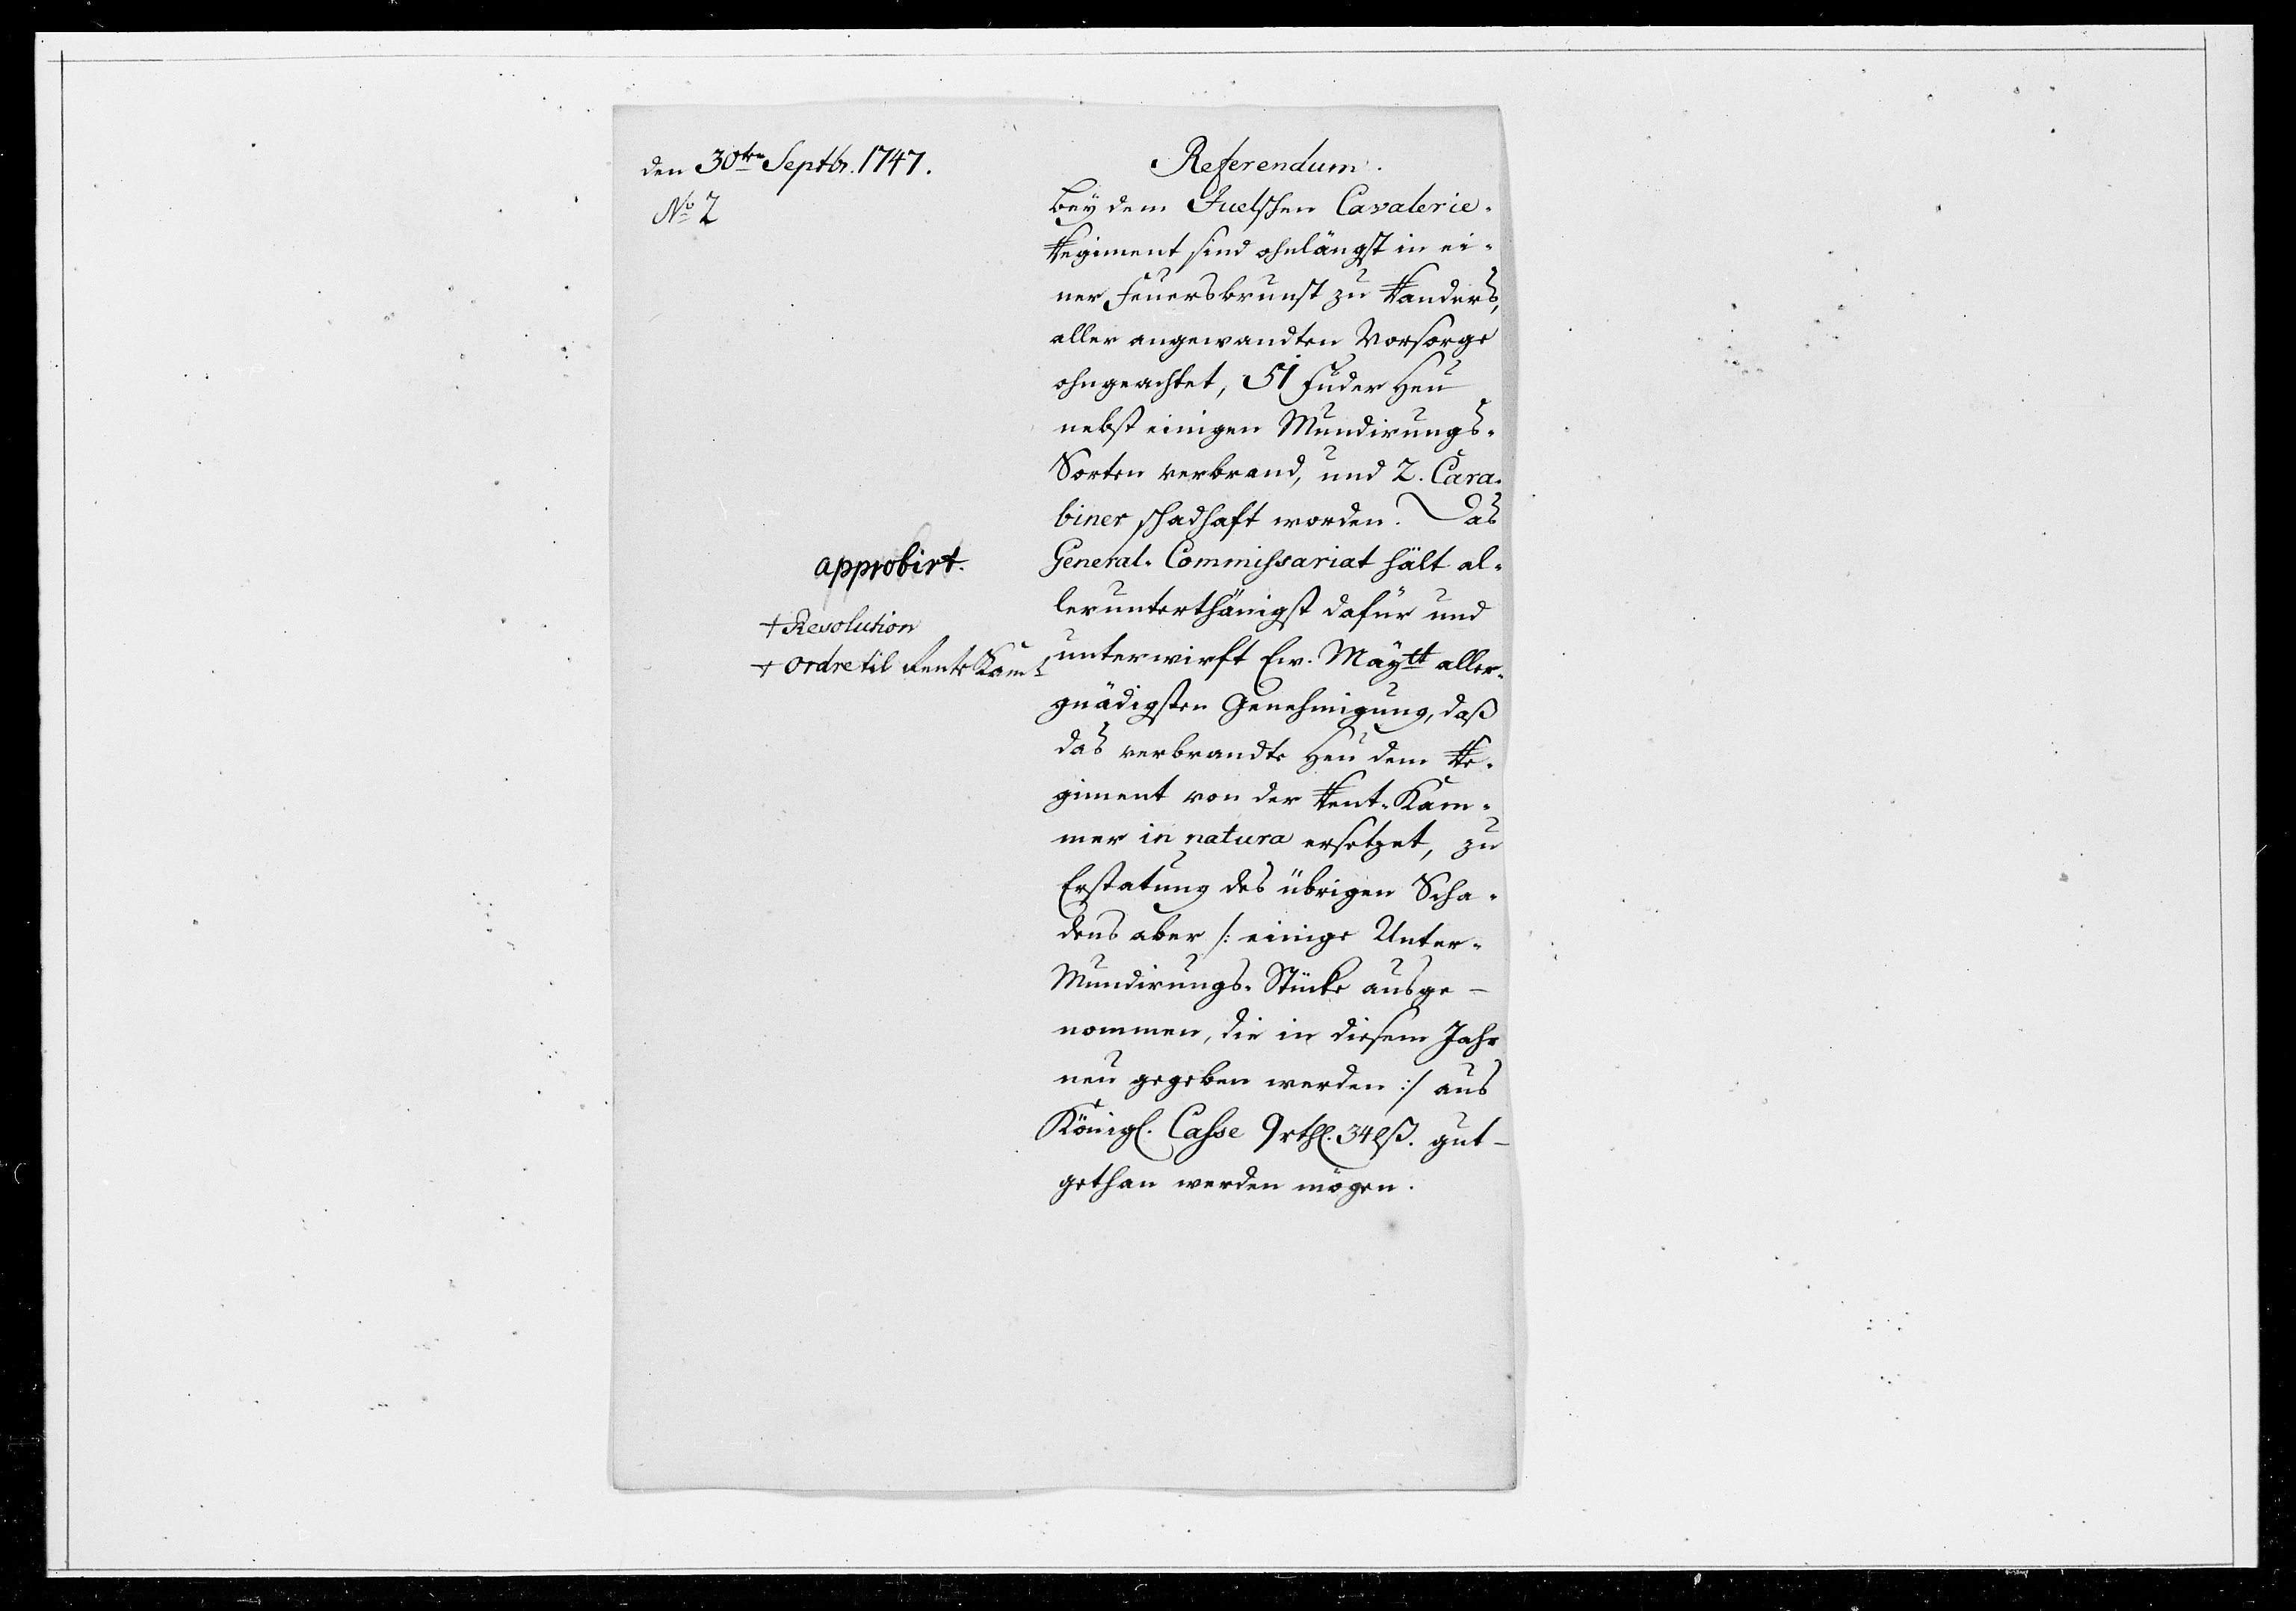 den 30ten Septbr. 1747.
No 2
approbirt.
+ Resolution
+ ordre til Rente Kam
Referendum.
Bey dem Juelschen Cavalerie-
Regiment sind ohnlängst in ei-
ner Feuersbrunst zu Randers,
aller angewandten Vorsorge
ohngeachtet, 51 Fuder Heu
nebst einigen Mundirungs-
Sorten verbrand, und 2. Cara-
biner schadhaft worden. Das
General-Commissariat hält al-
lerunterthänigst dafür und
unterwirft Ew. Maytt aller-
gnädigsten Genehmigung, daß
das verbrandte Heu dem Re-
giment von der Rent-Kam-
mer in natura ersetzet, zu
Erstatung des übrigen Scha-
dens aber /: einige Unter-
Mundirungs-Stücke ausge-
nommen, die in diesem Jahr
neu gegeben werden :/ aus
Königl. Casse 9 rthl. 34 lß. gut-
gethan werden mögen.